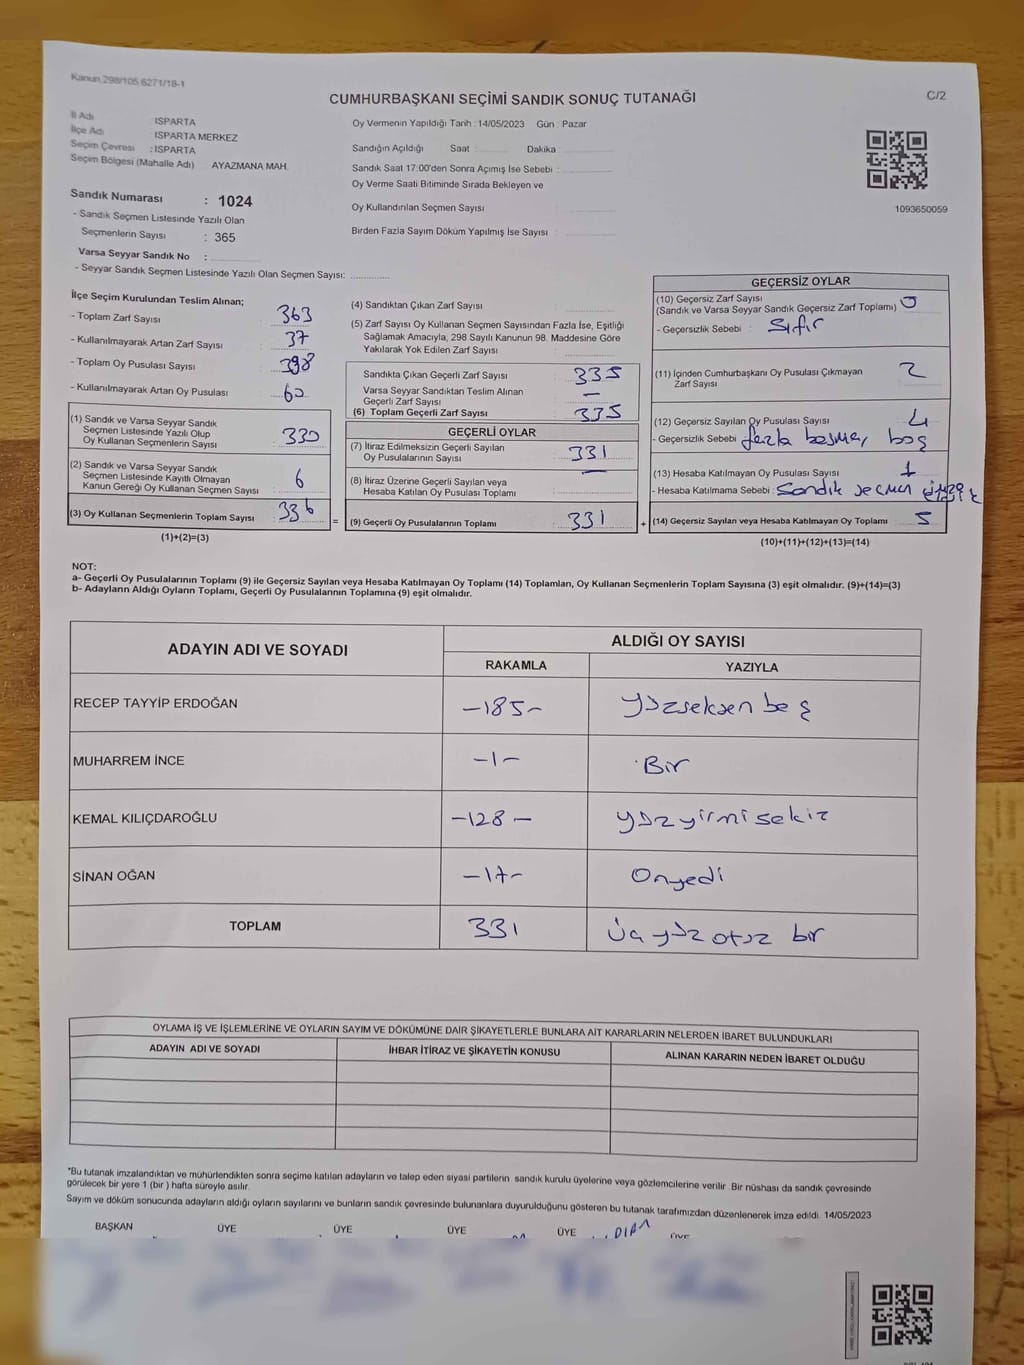 Kanun 298/105,6271/18-1
C/2
CUMHURBAŞKANI SEÇİMİ SANDIK SONUÇ TUTANAĞI
İl Adı : ISPARTA
İlçe Adı ISPARTA MERKEZ
Seçim Çevresi : ISPARTA
Seçim Bölgesi (Mahalle Adı) AYAZMANA MAH.
Sandık Numarası : 1024
- Sandık Seçmen Listesinde Yazılı Olan
Seçmenlerin Sayısı : 365
Varsa Seyyar Sandık No :
- Seyyar Sandık Seçmen Listesinde Yazılı Olan Seçmen Sayısı:
Oy Vermenin Yapıldığı Tarih : 14/05/2023 Gün : Pazar
Sandığın Açıldığı Saat : Dakika :
Sandık Saat 17:00'den Sonra Açımış İse Sebebi :
Oy Verme Saati Bitiminde Sırada Bekleyen ve
Oy Kullandırılan Seçmen Sayısı :
Birden Fazla Sayım Döküm Yapılmış İse Sayısı :
1093650059
İlçe Seçim Kurulundan Teslim Alınan;
- Toplam Zarf Sayısı : 363
- Kullanılmayarak Artan Zarf Sayısı : 37
- Toplam Oy Pusulası Sayısı : 398
- Kullanılmayarak Artan Oy Pusulası : 60
(1) Sandık ve Varsa Seyyar Sandık
Seçmen Listesinde Yazılı Olup
Oy Kullanan Seçmenlerin Sayısı : 330
(2) Sandık ve Varsa Seyyar Sandık
Seçmen Listesinde Kayıtlı Olmayan
Kanun Gereği Oy Kullanan Seçmen Sayısı : 6
(3) Oy Kullanan Seçmenlerin Toplam Sayısı : 336
(1)+(2)=(3)
(4) Sandıktan Çıkan Zarf Sayısı :
(5) Zarf Sayısı Oy Kullanan Seçmen Sayısından Fazla İse, Eşitliği
Sağlamak Amacıyla, 298 Sayılı Kanunun 98. Maddesine Göre
Yakılarak Yok Edilen Zarf Sayısı :
Sandıkta Çıkan Geçerli Zarf Sayısı : 335
Varsa Seyyar Sandıktan Teslim Alınan
Geçerli Zarf Sayısı : —
(6) Toplam Geçerli Zarf Sayısı : 335
GEÇERLİ OYLAR
(7) İtiraz Edilmeksizin Geçerli Sayılan
Oy Pusulalarının Sayısı : 331
(8) İtiraz Üzerine Geçerli Sayılan veya
Hesaba Katılan Oy Pusulası Toplamı : —
= (9) Geçerli Oy Pusulalarının Toplamı : 331
GEÇERSİZ OYLAR
(10) Geçersiz Zarf Sayısı
(Sandık ve Varsa Seyyar Sandık Geçersiz Zarf Toplamı) : 0
- Geçersizlik Sebebi : Sıfır
(11) İçinden Cumhurbaşkanı Oy Pusulası Çıkmayan
Zarf Sayısı : 2
(12) Geçersiz Sayılan Oy Pusulası Sayısı : 4
- Geçersizlik Sebebi : fazla basma, boş
(13) Hesaba Katılmayan Oy Pusulası Sayısı : 1
- Hesaba Katılmama Sebebi : Sandık seçmen
+ (14) Geçersiz Sayılan veya Hesaba Katılmayan Oy Toplamı : 5
(10)+(11)+(12)+(13)=(14)
NOT:
a- Geçerli Oy Pusulalarının Toplamı (9) ile Geçersiz Sayılan veya Hesaba Katılmayan Oy Toplamı (14) Toplamları, Oy Kullanan Seçmenlerin Toplam Sayısına (3) eşit olmalıdır. (9)+(14)=(3)
b- Adayların Aldığı Oyların Toplamı, Geçerli Oy Pusulalarının Toplamına (9) eşit olmalıdır.
ADAYIN ADI VE SOYADI
ALDIĞI OY SAYISI
RAKAMLA YAZIYLA
RECEP TAYYİP ERDOĞAN -185- Yüzseksen beş
MUHARREM İNCE -1- Bir
KEMAL KILIÇDAROĞLU -128- yüz yirmi sekiz
SİNAN OĞAN -17- Onyedi
TOPLAM 331 Üç yüz otuz bir
OYLAMA İŞ VE İŞLEMLERİNE VE OYLARIN SAYIM VE DÖKÜMÜNE DAİR ŞİKAYETLERLE BUNLARA AİT KARARLARIN NELERDEN İBARET BULUNDUKLARI
ADAYIN ADI VE SOYADI İHBAR İTİRAZ VE ŞİKAYETİN KONUSU ALINAN KARARIN NEDEN İBARET OLDUĞU
"Bu tutanak imzalandıktan ve mühürlendikten sonra seçime katılan adayların ve talep eden siyasi partilerin sandık kurulu üyelerine veya gözlemcilerine verilir. Bir nüshası da sandık çevresinde
görülecek bir yere 1 (bir ) hafta süreyle asılır.
Sayım ve döküm sonucunda adayların aldığı oyların sayılarını ve bunların sandık çevresinde bulunanlara duyurulduğunu gösteren bu tutanak tarafımızdan düzenlenerek imza edildi. 14/05/2023
BAŞKAN ÜYE ÜYE ÜYE ÜYE ÜYE